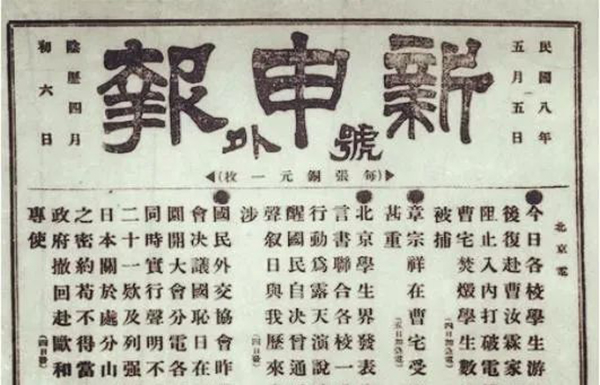 民國八年
五月五日
新申報
號外
(每張銅元一枚)
陰歷四月
初六日
北京電
●今日各校學生游
後復赴曹汝霖家
阻止入內打破電
曹宅焚燬學生數
被捕(四日加急電)
●章宗祥在曹宅受
甚重(五日加急電)
●北京學生界發表
言書聯合各校一
行動爲露天演說
醒國民自决曾通
聲叙日與我歷來
涉(四日發)
●國民外交協會昨
會决議國恥日在
園開大會分電各
同時實行聲明不
二十一欵及列强
日本關於處分山
之密約苟不得當
政府撤回赴歐和
專使(四日發)